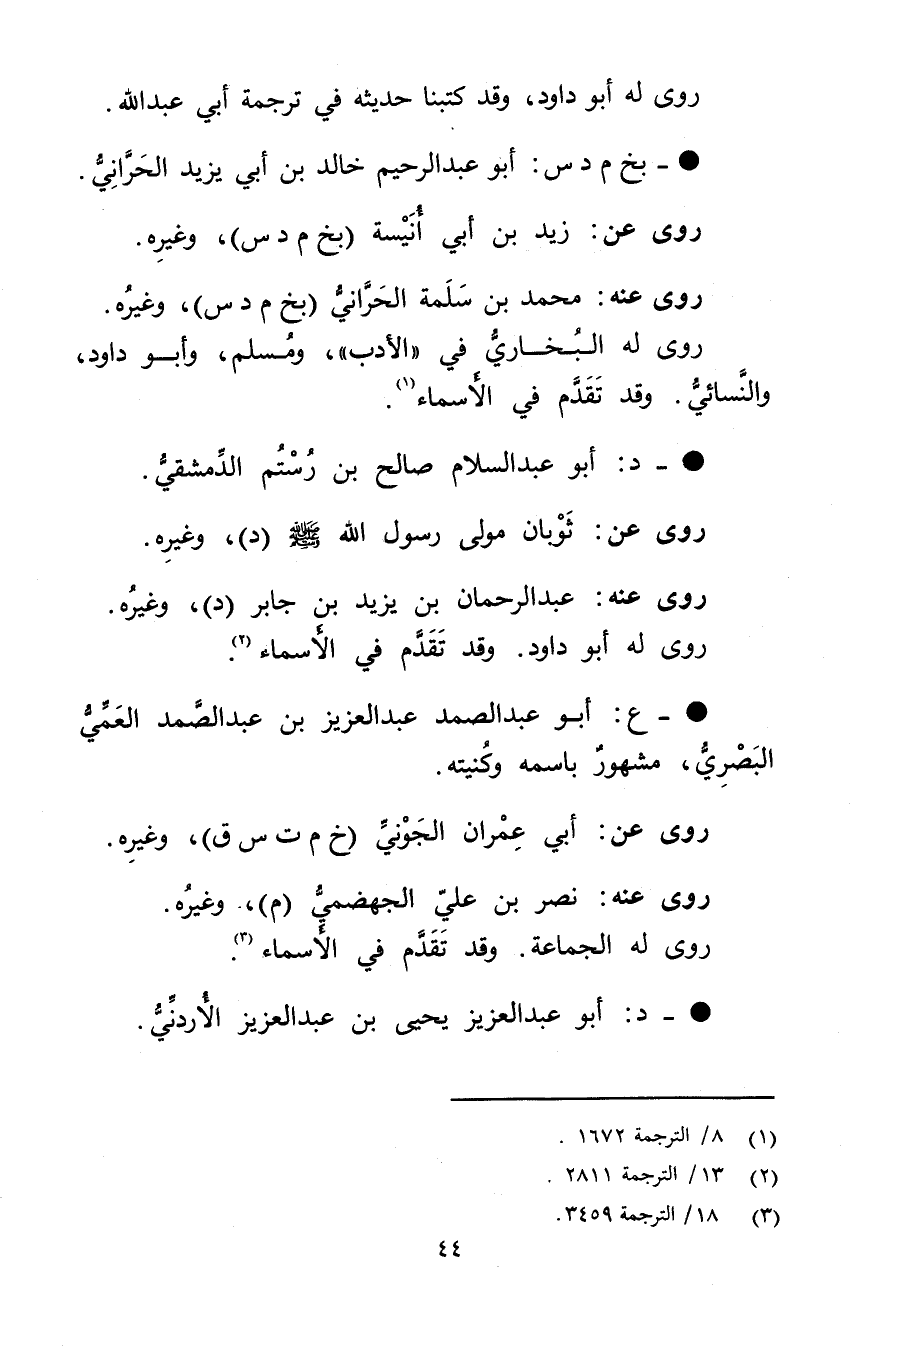 روى له أبو داود، وقد كتبنا حديثه في ترجمة أبي عبدالله .
● ـ بخ م د س : أبو عبدالرحيم خالد بن أبي يزيد الحَرَّانِيُّ .
روى عن : زيد بن أبي أُنَيْسة (بخ م د س)، وغيرِه .
روى عنه : محمد بن سَلَمة الحَرَّانيُّ (بخ م د س)، وغيرُه .
روى له البُخاريُّ في «الأدب»، ومُسلم، وأبو داود،
والنَّسائيُّ . وقد تَقَدَّم في الأَسماء(١) .
● ـ د : أبو عبدالسلام صالح بن رُسْتُم الدِّمشقيُّ .
روى عن : ثَوْبان مولى رسول الله ﷺ (د)، وغيرِه .
روى عنه : عبدالرحمان بن يزيد بن جابر (د)، وغيرُه .
روى له أبو داود . وقد تَقَدَّم في الأَسماء(٢) .
● ـ ع : أبو عبدالصمد عبدالعزيز بن عبدالصَّمد العَمِّيُّ
البَصْرِيُّ، مشهورٌ باسمه وكُنيته .
روى عن : أبي عِمْران الجَوْنيِّ (خ م ت س ق)، وغيرِه .
روى عنه : نصر بن عليّ الجهضميُّ (م)، وغيرُه .
روى له الجماعة . وقد تَقَدَّم في الأَسماء(٣) .
● ـ د : أبو عبدالعزيز يحيى بن عبدالعزيز الأُردنِّيُّ .
(١) ٨/ الترجمة ١٦٧٢ .
(٢) ١٣/ الترجمة ٢٨١١ .
(٣) ١٨/ الترجمة ٣٤٥٩ .
٤٤